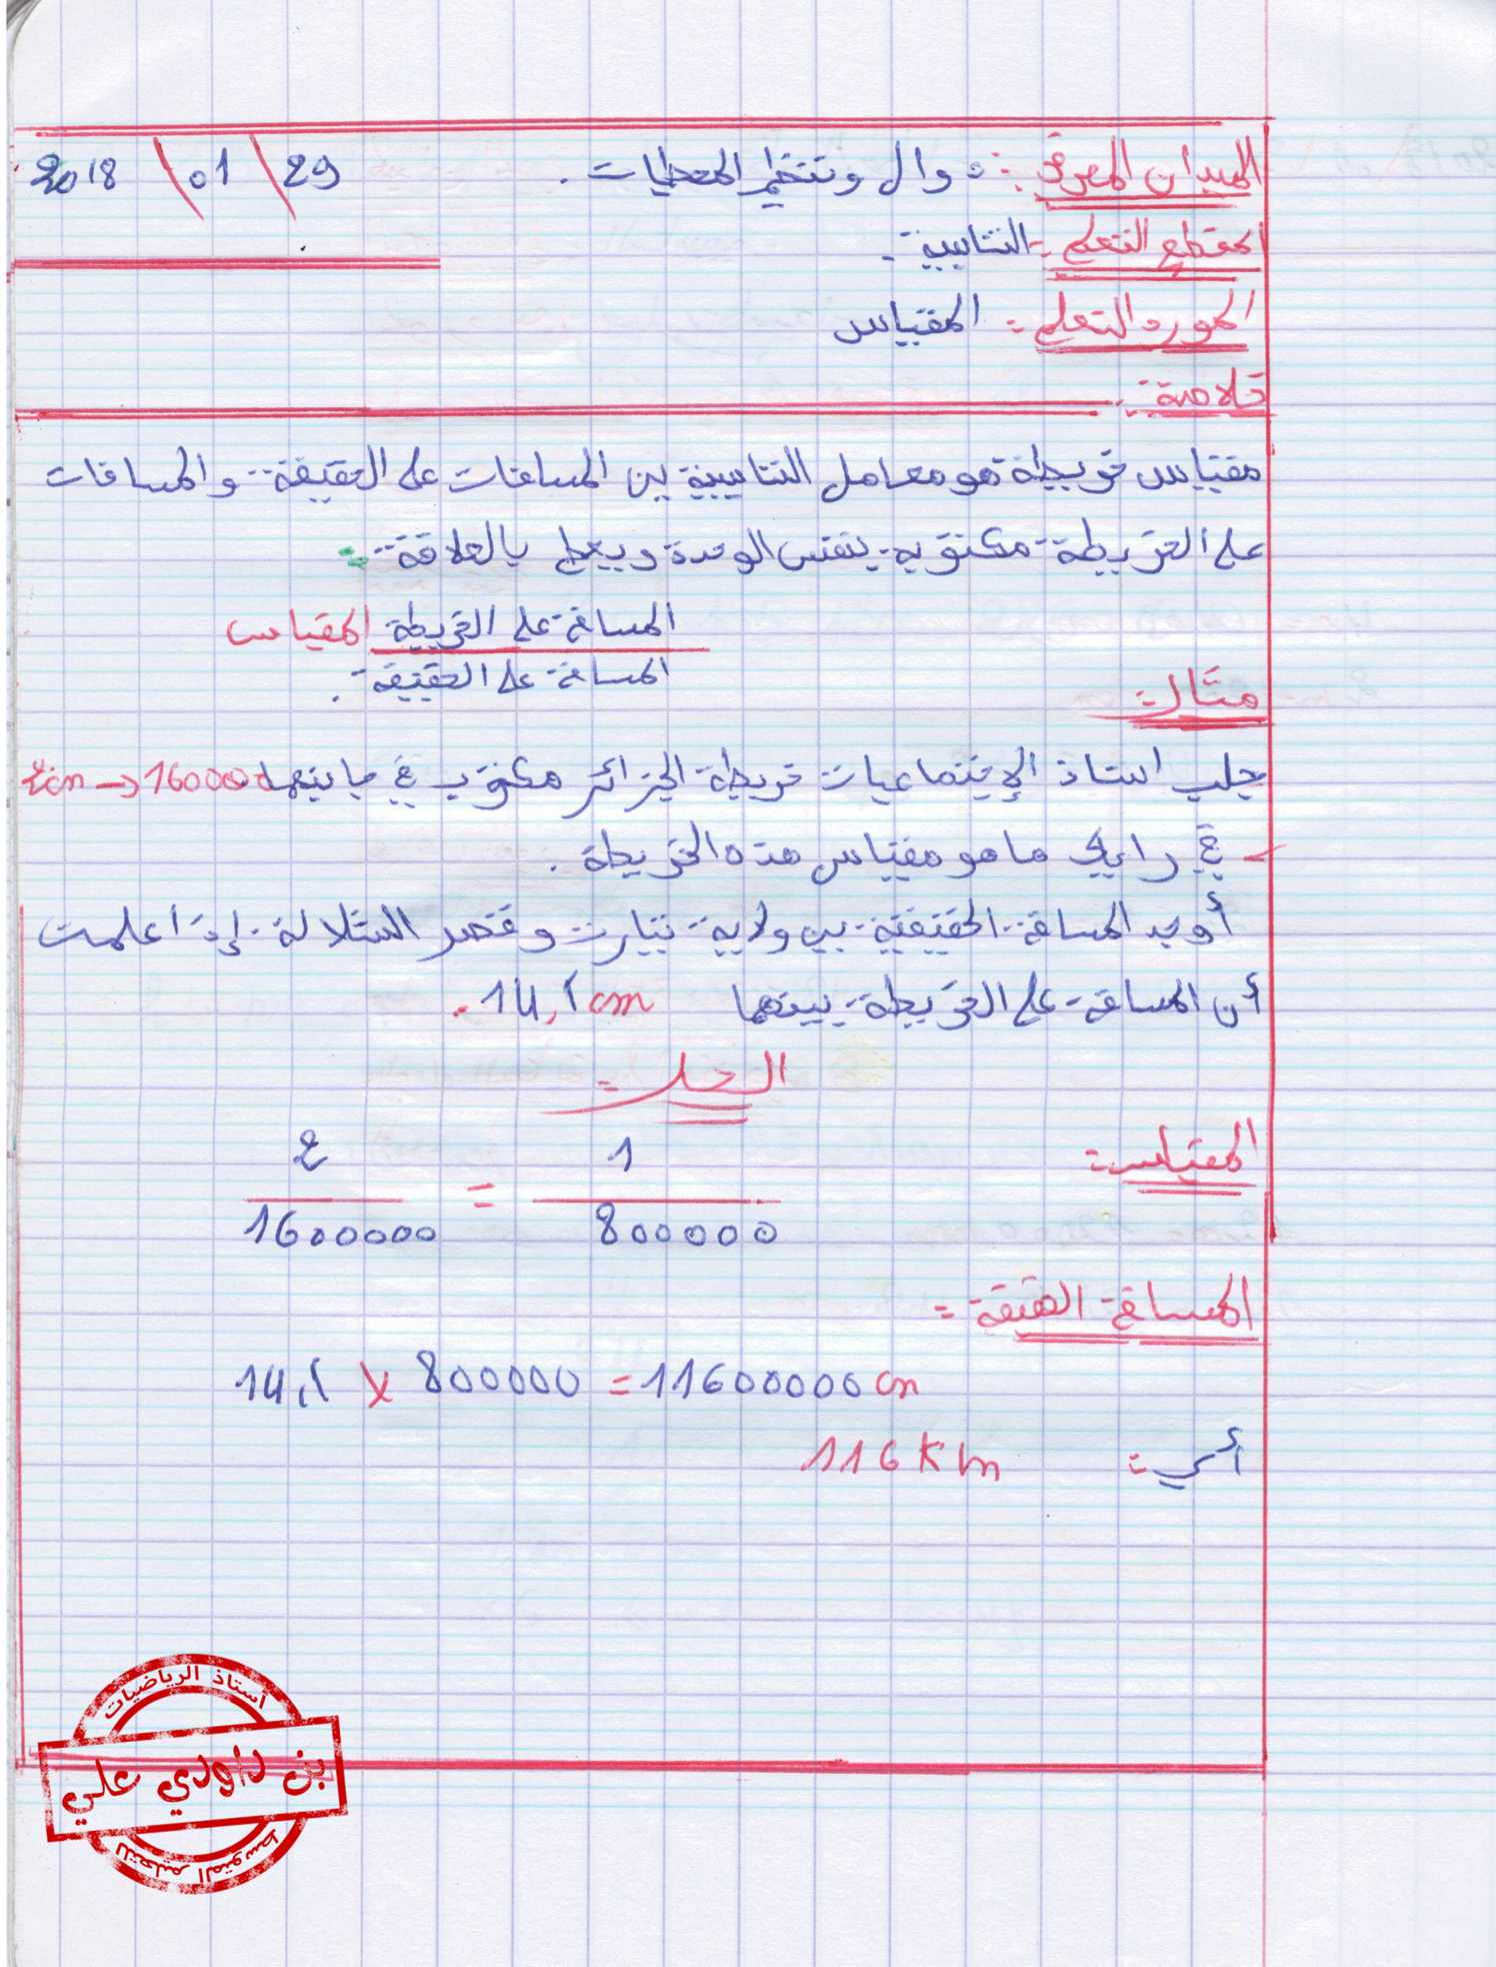 الميدان المعرفي: دوال وتنظيم المعطيات. 29 \ 01 \ 2018
المقطع التعلمي: التناسبية.
المورد التعلمي: المقياس
خلاصة:
مقياس خريطة هو معامل التناسبية بين المسافات على الحقيقة والمسافات
على الخريطة مكتوبة بنفس الوحدة ويعطى بالعلاقة:
المسافة على الخريطة المقياس
المسافة على الحقيقة.
مثال:
جلب استاذ الإجتماعيات خريطة الجزائر مكتوب في جانبها 2cm → 1600000
- في رايك ما هو مقياس هذه الخريطة.
أوجد المسافة الحقيقية بين ولاية تيارت وقصر الشلالة إذا علمت
أن المسافة على الخريطة بينهما 14,5 cm.
الحل:
المقياس:
2/1600000 = 1/800000
المسافة الحقيقة:
14,5 x 800000 = 11600000 cm
أي: 116 Km
أستاذ الرياضيات
بن داودي علي
للتعليم المتوسط